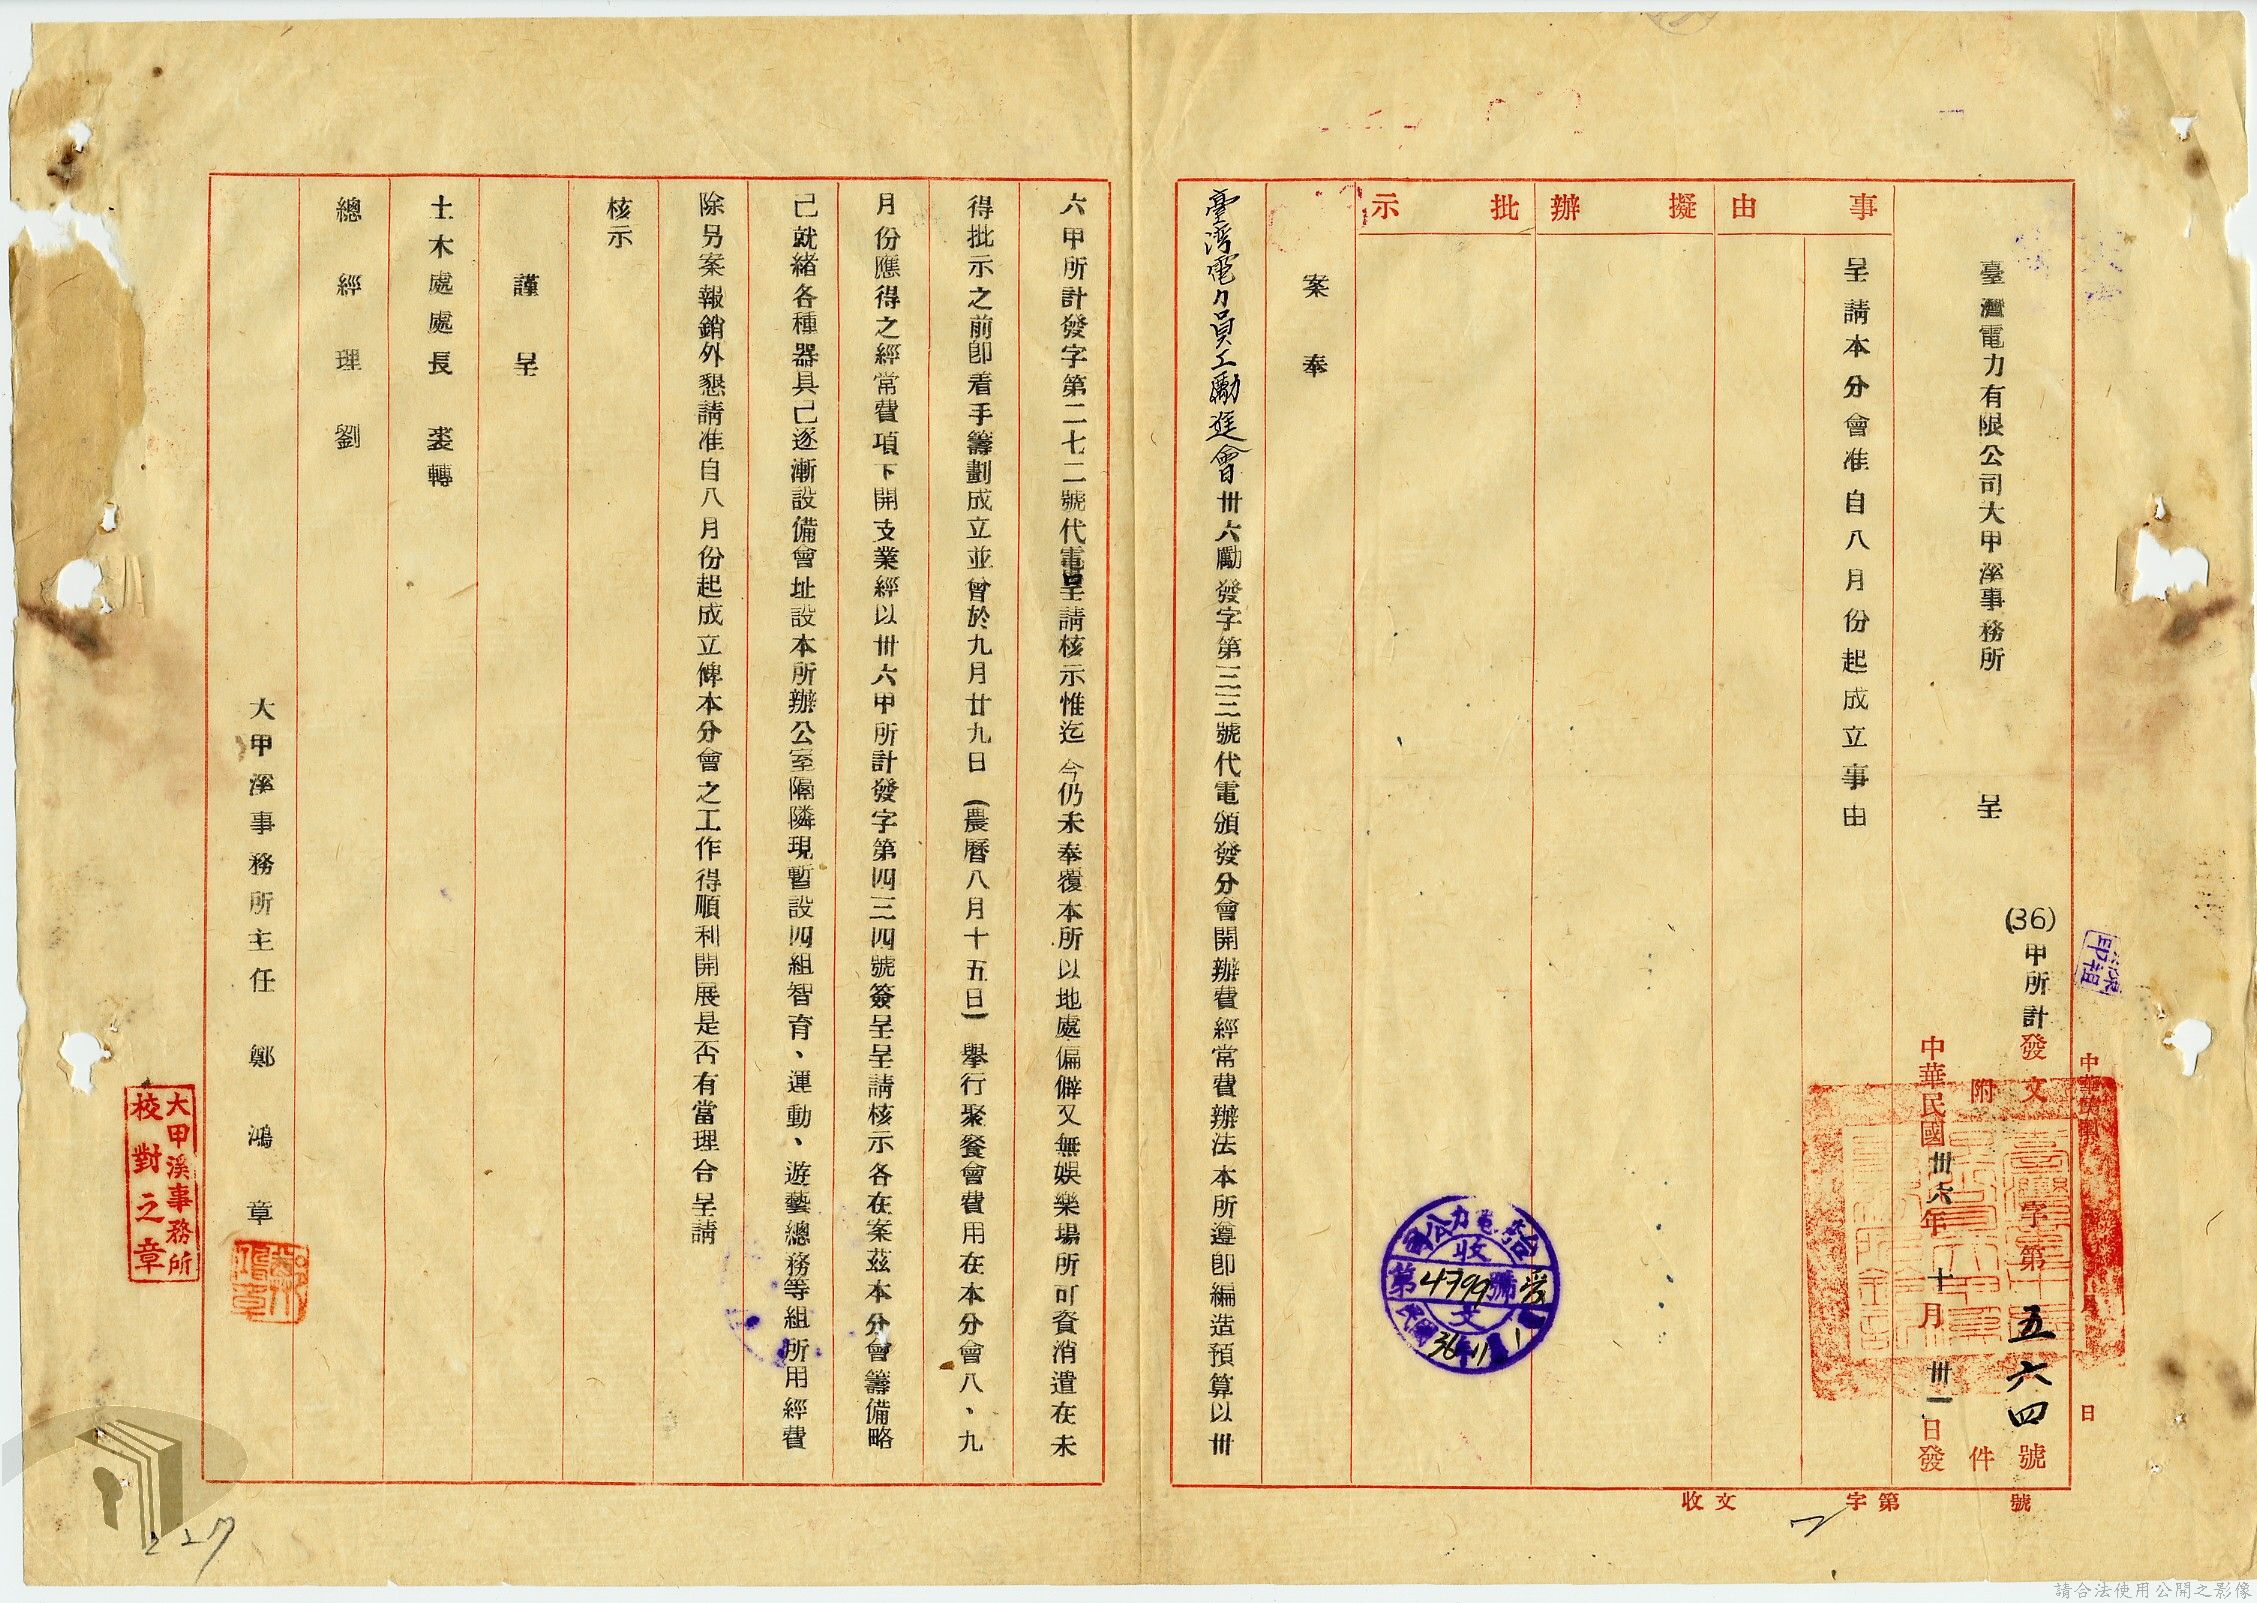 臺灣電力有限公司大甲溪事務所 呈
(36)甲所計發文字第五六四號
附件
中華民國卅六年十月卅一日發
事由
擬辦
批示
呈請本分會准自八月份起成立事由
案奉
臺灣電力員工勵進會卅六勵發字第三三號代電頒發分會開辦費經常費辦法本所遵即編造預算以卅
六甲所計發字第二七二號代電呈請核示惟迄今仍未奉覆本所以地處偏僻又無娛樂場所可資消遣在未
得批示之前即着手籌劃成立並曾於九月廿九日(農曆八月十五日)舉行聚餐會費用在本分會八、九
月份應得之經常費項下開支業經以卅六甲所計發字第四三四號簽呈呈請核示各在案茲本分會籌備略
已就緒各種器具已逐漸設備會址設本所辦公室隔隣現暫設四組智育、運動、遊藝總務等組所用經費
除另案報銷外懇請准自八月份起成立俾本分會之工作得順利開展是否有當理合呈請
核示
謹呈
土木處處長 裘轉
總經理 劉
大甲溪事務所主任 鄭鴻章
大甲溪事務所
校對之章
鄭鴻章
收文
第4799號
36年11月1
收文 字第 號
227
請合法使用公開之影像